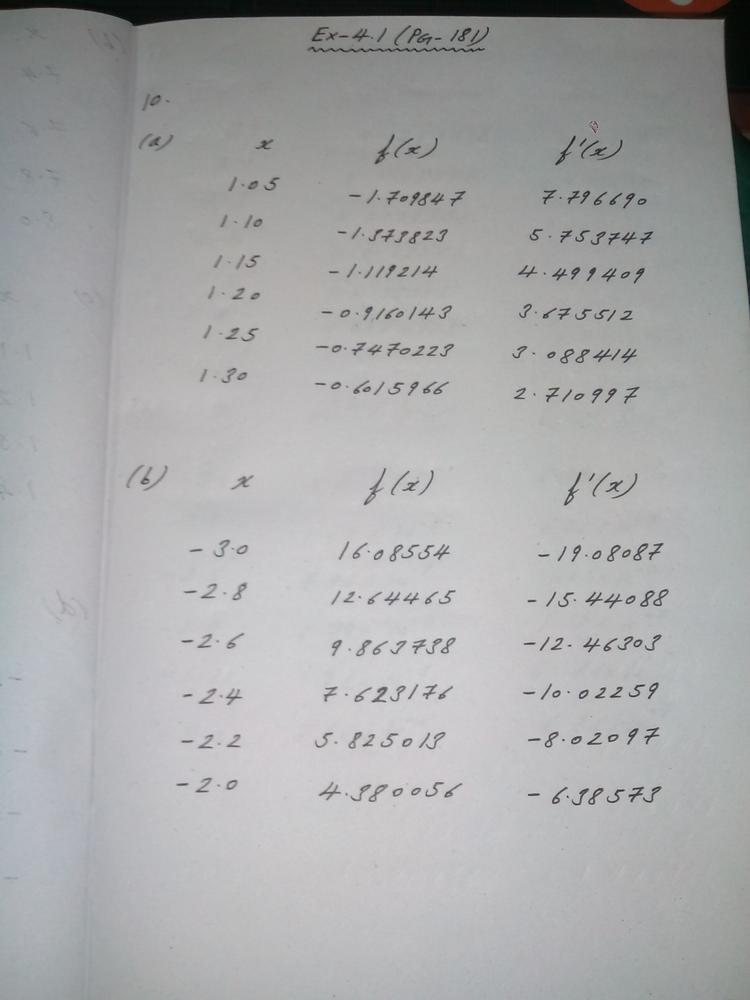 Ex-4.1 (PG-181)
10.
(a) x f(x) f'(x)
1.05 -1.709847 7.796690
1.10 -1.373823 5.753747
1.15 -1.119214 4.499409
1.20 -0.9160143 3.675512
1.25 -0.7470223 3.088414
1.30 -0.6015966 2.710997
(b) x f(x) f'(x)
-3.0 16.08554 -19.08087
-2.8 12.64465 -15.44088
-2.6 9.863738 -12.46303
-2.4 7.623176 -10.02259
-2.2 5.825013 -8.02097
-2.0 4.380056 -6.38573